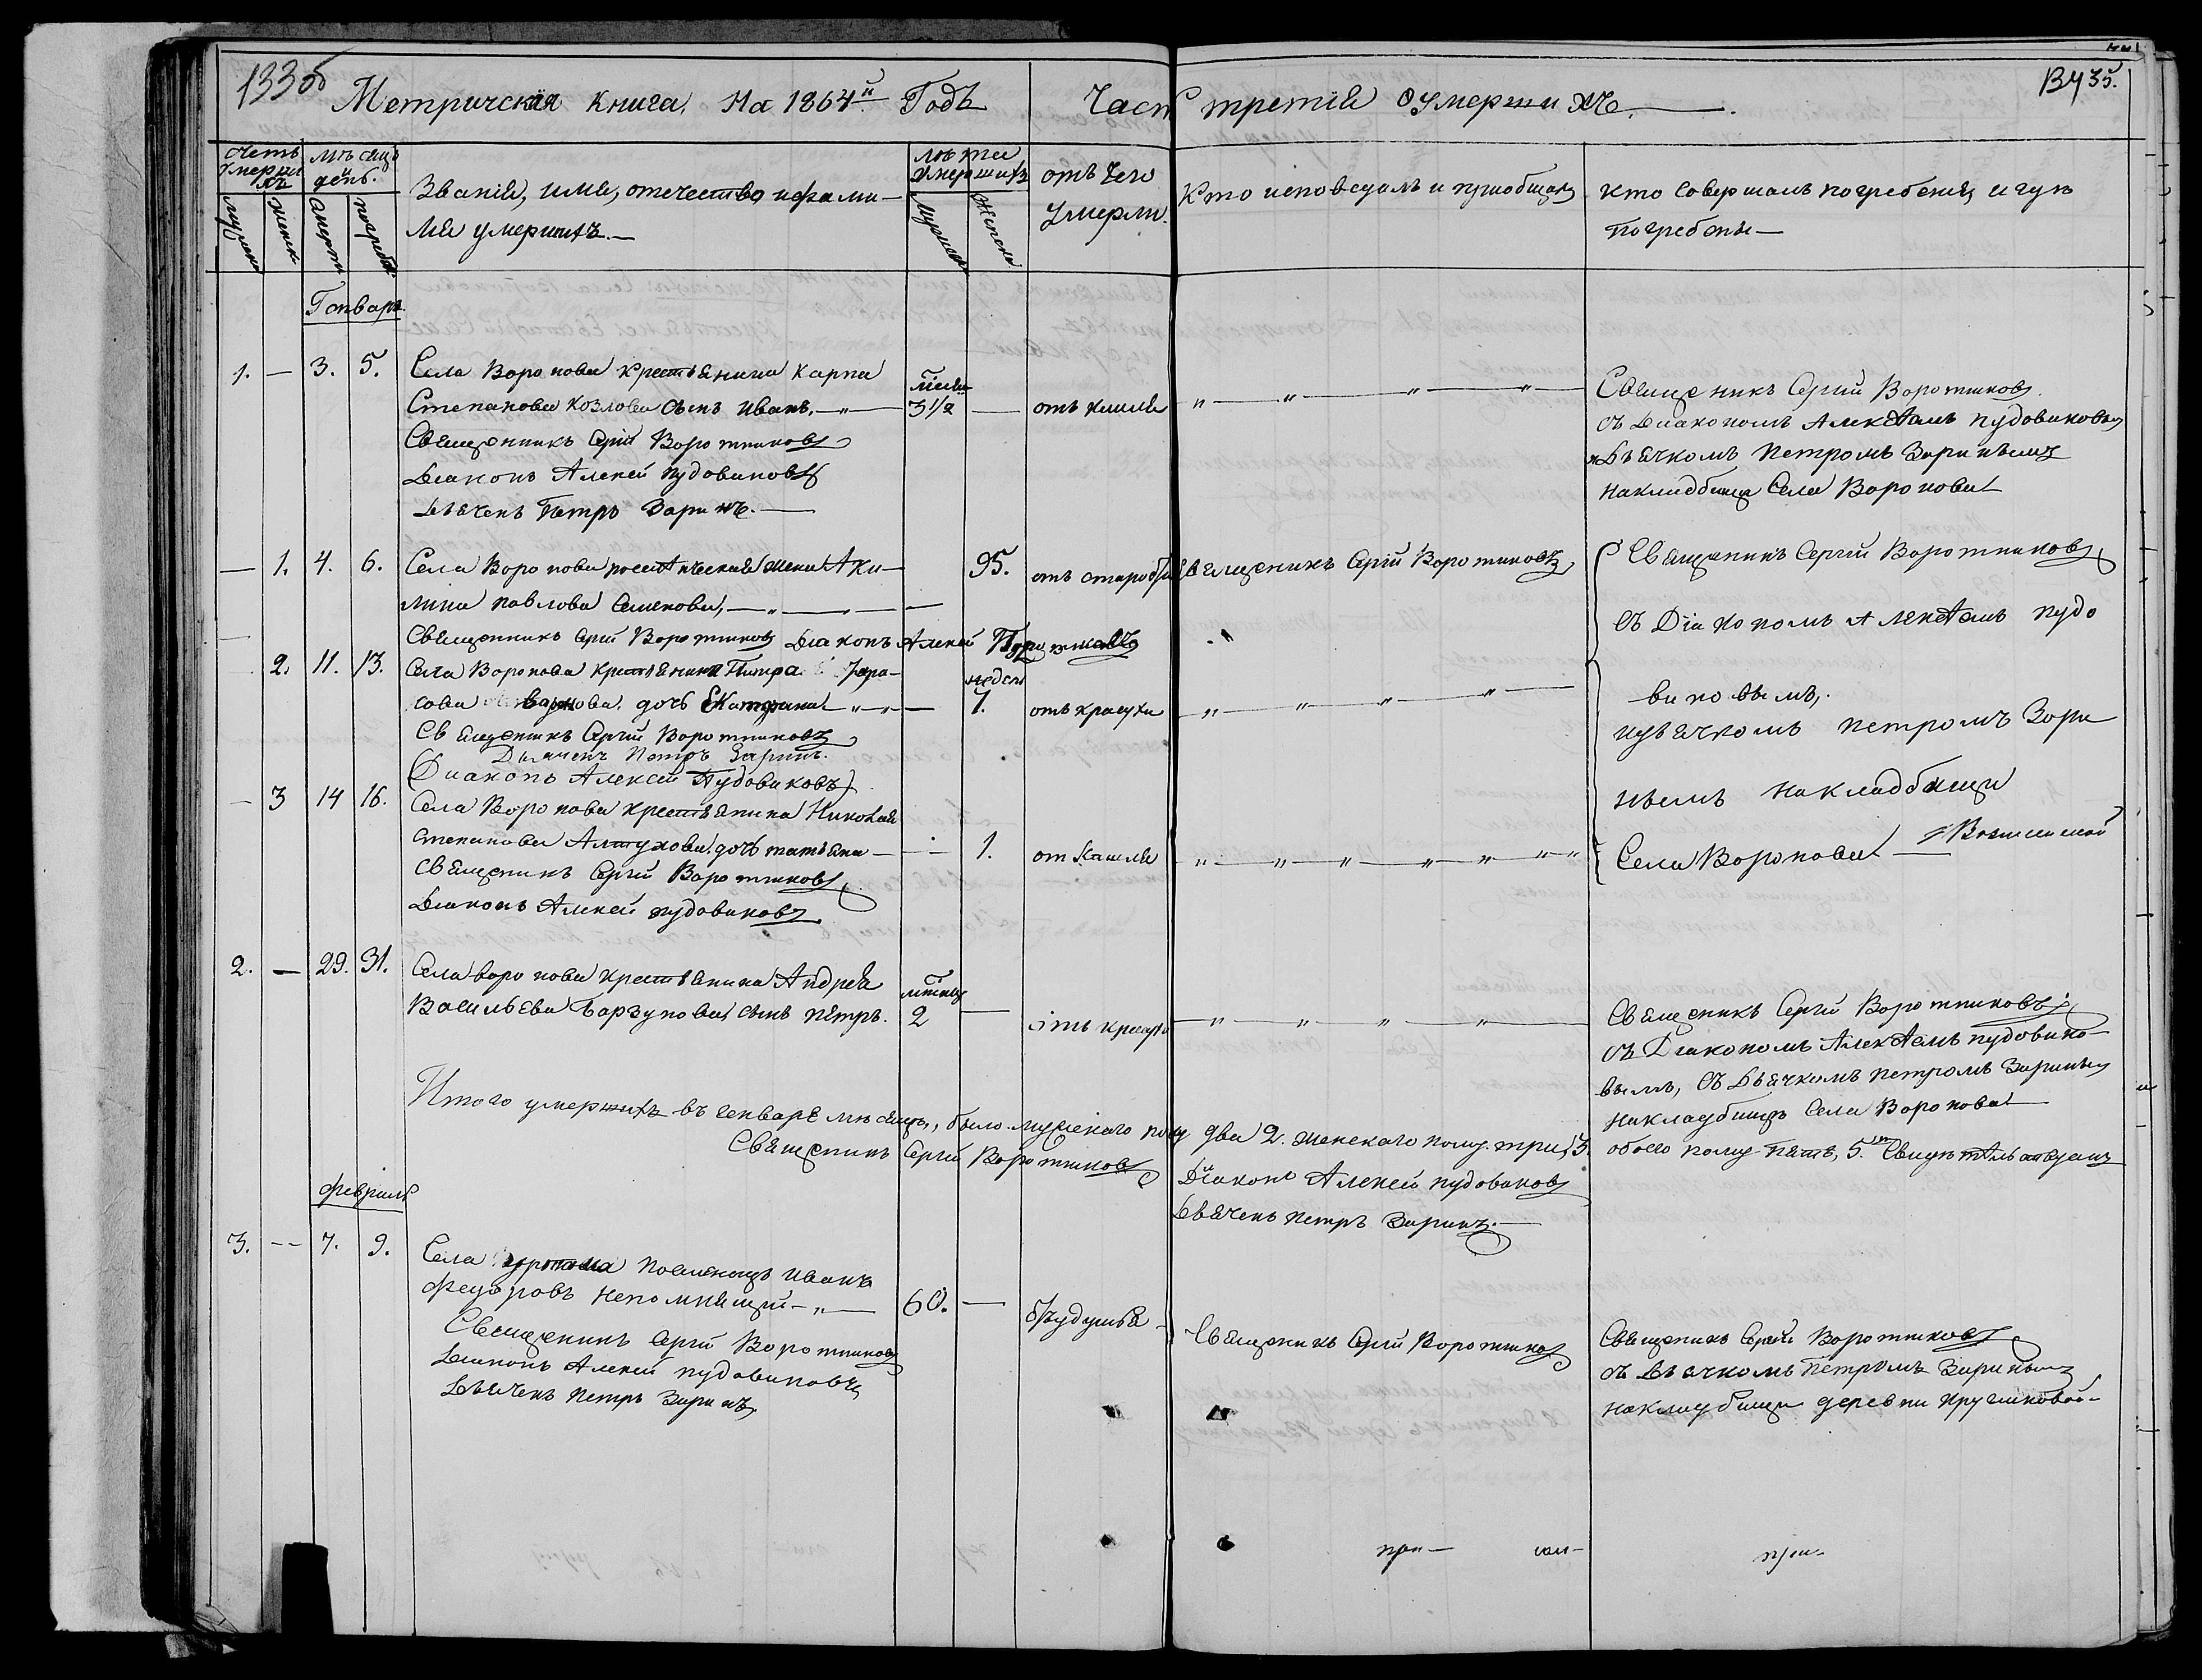 133об
134 35.
Метрическая книга, на 1864й Годъ Часть третия о умершихъ.
Счетъ умершихъ
мѣсяцъ и день.
Званія, имя, отечество и фами-
лія умершихъ.
лѣта умершихъ
отъ чего
умерли.
Кто исповедалъ и приобщалъ
кто совершалъ погребеніе, и гдѣ
погребены
мужска
женск
смерти
погребе
мужеска
женска
Генварь
1. — 3. 5. Села Воронова крестьянина Карпа
Степанова Козлова сынъ Иванъ. 3 1/2 — отъ кашля
Священникъ Сергій Воротниковъ
Діаконъ Алексѣй Пудовиковъ
Дьячекъ Петръ Заринъ.
Священникъ Сергій Воротниковъ
съ Диакономъ Алексѣемъ Пудовиковым
и Дьячкомъ Петромъ Заринымъ
на кладбищѣ Села Воронова
— 1. 4. 6. Села Воронова жена Аки-
лина Павлова Семенова, 95. отъ старости Священикъ Сергій Воротниковъ
Священникъ Сергій Воротниковъ Діаконъ Алексей
Священикъ Сергій Воротниковъ
съ Діакономъ Алексѣемъ Пудо
виковымъ,
и дьячкомъ Петромъ Зари
нымъ на кладбищи
Села Воронова
2. 11. 13. Села Воронова крестьянина Петра
дочь Екатерина недель 7. отъ краснухи
Священикъ Сергій Воротниковъ
Дьячекъ Петръ Заринъ.
(Диаконъ Алексей Пудовиковъ)
— 3 14 16. Села Воронова крестьянина Николая
Степанова Алтухова дочь Татьяна — 1. от кашля
Священикъ Сергій Воротниковъ
Диаконъ Алексей Пудовиковъ
2. — 29. 31. Села Воронова крестьянина Андрея
Васильева Барзунова сынъ Петръ. 2 — отъ краснухи
Священикъ Сергій Воротниковъ
съ Діакономъ Алексѣемъ Пудовико-
вымъ, съ Дьячкомъ Петромъ Зариным
на кладбищѣ Села Воронова
Итого умершихъ въ генваре мѣсяцѣ, было мужескаго полу два 2. женскаго полу три, 3. обоего полу пять, 5.
Священикъ Сергій Воротниковъ
Діаконъ Алексей Пудовиковъ
Дьячекъ Петръ Заринъ.
Февраль
3. — 7. 9. Села поселенецъ Иванъ
Федоровъ Непомнящій 60. — удушья
Священикъ Сергій Воротниковъ
Диаконъ Алексей Пудовиковъ
Дьячекъ Петръ Заринъ
Священикъ Сергій Воротниковъ
Священикъ Сергій Воротниковъ
съ Дьячкомъ Петромъ Заринымъ
на кладбищи деревни Кругликовой